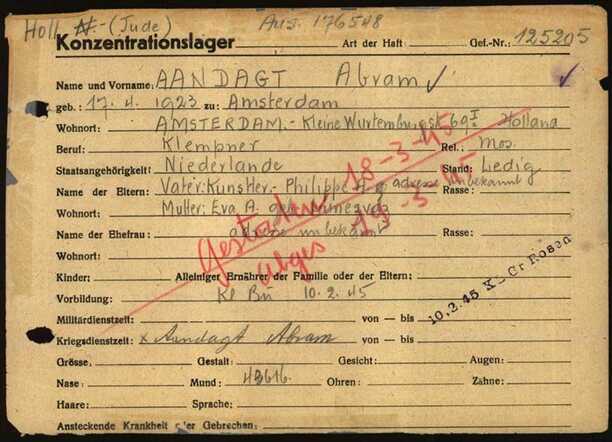 Holl (Jude) Aus. 176548
Konzentrationslager Art der Haft: Gef.-Nr.: 125205
Name und Vorname: AANDAGT Abram
geb.: 17. 4. 1923 zu: Amsterdam
Wohnort: AMSTERDAM.- Kleine Wurtemburgst. 69 I Holland
Beruf: Klempner Rel.: Mos.
Staatsangehörigkeit: Niederlande Stand: Ledig
Name der Eltern: Vater: Künstler- Philippe A. adresse unbekannt Rasse:
Wohnort: Mutter: Eva A. geb.
Name der Ehefrau: adresse unbekannt Rasse:
Wohnort:
gestorben 18-3-45
abges 19-3-45
Kinder: Alleiniger Ernährer der Familie oder der Eltern:
Vorbildung: Kl Bu 10.2.45
10.2.45 KL Gr Rosen
Militärdienstzeit: von — bis
Kriegsdienstzeit: x Aandagt Abram von — bis
Grösse: Gestalt: Gesicht: Augen:
Nase: Mund: 43616. Ohren: Zähne:
Haare: Sprache:
Ansteckende Krankheit oder Gebrechen: